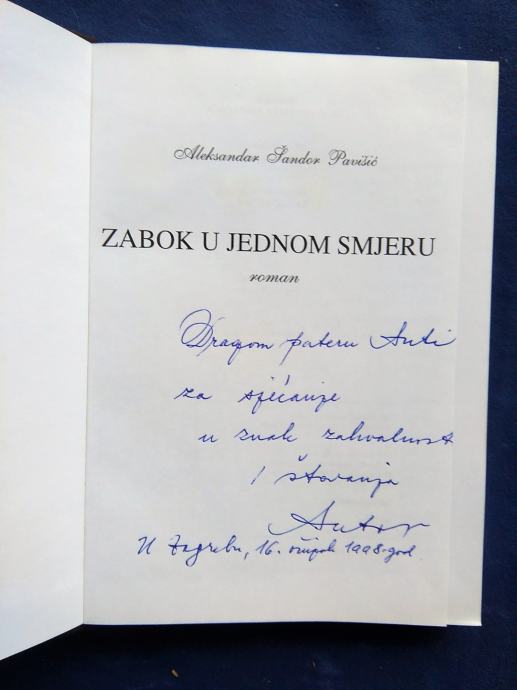 Aleksandar Šandor Pavišić
ZABOK U JEDNOM SMJERU
roman
Dragom pateru Anti
za sjećanje
u znak zahvalnost
i štovanja
Autor
U Zagrebu, 16. ožujak 1998. god.